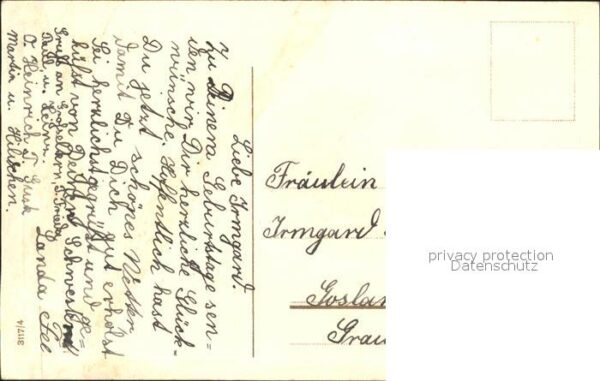 Liebe Irmgard.
Zu Deinem Geburtstage sen=
den wir Dir herzliche Glück=
wünsche. Hoffentlich hast
Du jetzt schönes Wetter
damit Du Dich gut erholst
Sei herzlichst gegrüßt und ge=
küßt von Deiner Schwester
Gruß an Großeltern, T. Frieda
O. Heinrich T. Guste
Martin u. Hilschen.
Fräulein
Irmgard
Goslar
Grau
3117/4
privacy protection
Datenschutz